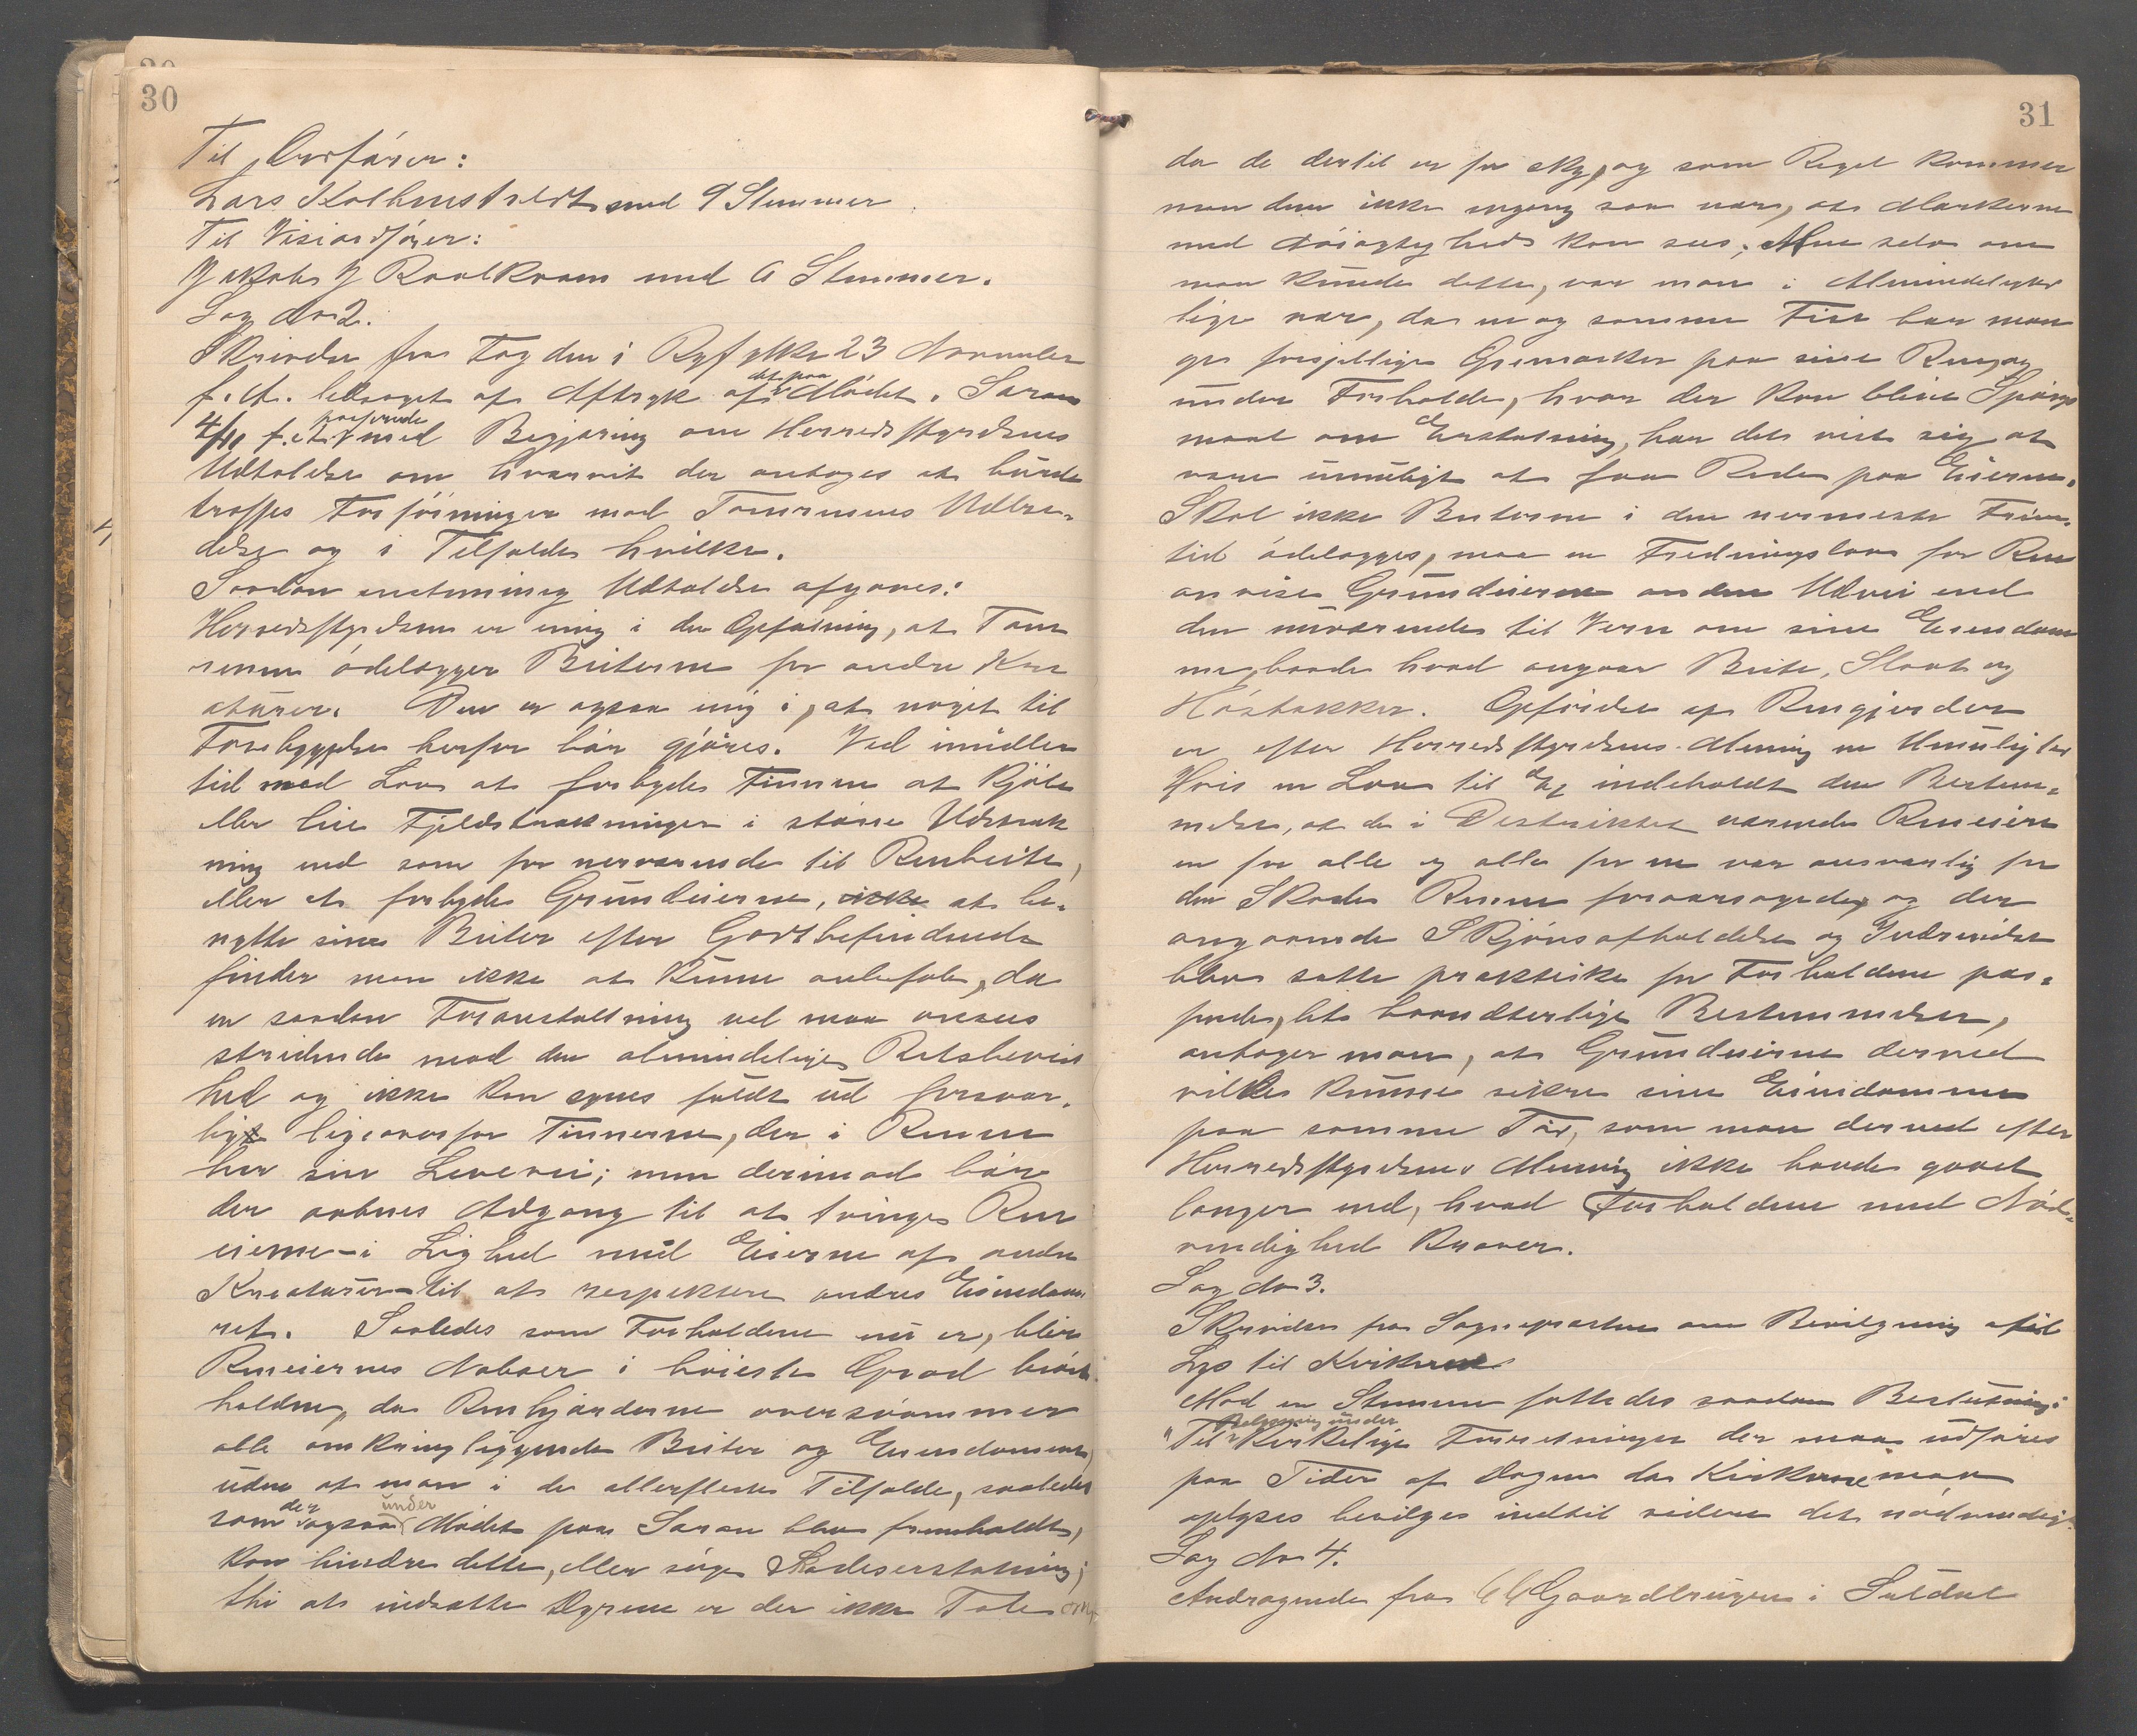 30
Til Ordförer:
Lars Kolbenstvedt med 9 Stemmer
Til Viseordförer:
Jakob J Roalkvam med 6 Stemmer.
Sag No 2.
Skrivelse fra Fogden i Ryfylke 23 November
f. A. ledsaget af Aftryk af det paa Mödet i Sarau
4/11 f. A. passerede med Begjæring om Herredsstyrelsens
Udtalelse om hvorvidt der antages at burde
træffes Forföininger mod Tamrenens Udbre-
delse og i Tilfælde hvilke.
Saadan enstemmig Udtalelse afgaves:
Herredsstyrelsen er enig i den Opfatning, at Tam
renen ödelægger Beiterne for andre Kre
aturer. Den er ogsaa enig i, at noget til
Forebyggelse herfor bör gjöres. Ved imidler
tid med Lov at forbyde Finnene at kjöbe
eller leie Fjeldstrækninger i större Udstræk
ning end som for nærværende til Renbeite,
eller at forbyde Grundeierne, ikke at be-
nytte sine Beiter efter Godtbefindende
finder man ikke at kunne anbefale, da
en saadan Foranstaltning vel maa ansees
stridende mod den almindelige Retsbevist
hed og ikke kan synes fuldt ud forsvar-
lig ligeoverfor Finnerne, der i Renen
har sin Levevei; men derimod bör
der aabnes Adgang til at tvinge Ren
eierne - i Lighed med Eierne af andre
Kreaturer - til at respektere andres Eiendoms
ret. Saaledes som Forholdene nu er, blir
Reneiernes Naboer i höieste Grad
holdne, da Renhjorderne oversvömmer
alle omkringliggende Beiter og Eiendomme,
uden at man i de allerfleste Tilfælde, saaledes
som der ogsaa under Mödet paa Sarau blev fremholdt,
kan hindre dette, eller söge Skadeserstatning;
thi at indsætte Dyrene er der ikke Tale om
31
da de dertil er for sky, og som Regel kommer
man dem ikke engang saa nær, at Mærkerne
med Nöiagtighed kan sees. Men selv om
man kunde dette, var man i Almindelighed
lige nær, da en og samme Fin har man
ge forskjellige Öremærker paa sine Ren, og
under Forholde, hvor der kan blive Spörgs
maal om Erstatning, har det vist sig at
være umuligt at faa Rede paa Eieren.
Skal ikke Beiterne i den nærmeste Frem-
tid ödelægges, maa en Fredningslov for Ren
anvise Grundeierne anden Udvei end
den nuværende til Vern om sine Eiendom
me, baade hvad angaar Beite, Slaat og
Höstakker. Opförelse af Rengjerder
er efter Herredsstyrelsens Mening en Umulighed
Hvis en Lov til Ex indeholdt den Bestem-
melse, at de i Distriktet værende Reneiere
en for alle og alle for en var ansvarlig for
den Skade Renen foraarsagede, og der
angaaende Skjönsafholdelse og Inddrivelse
blev satte praktiske for Forholdene pas-
sende, let haandterlige Bestemmelser,
antager man, at Grundeierne derved
vilde kunne sikre sine Eiendomme
paa samme Tid, som man derved efter
Herredsstyrelsens Mening ikke havde gaaet
længer end, hvad Forholdene med Nöd-
vendighed kræver.
Sag No 3.
Skrivelse fra Sognepresten om Bevilgning til
Lys til Kirkerne
Mod en Stemme fattedes saadan Beslutning:
"Til Belysning under Kirkelige Forretninger der maa udföres
paa Tider af Dagen da Kirkerne maa
oplyses bevilges indtil videre det nödvendige."
Sag No 4.
Andragende fra 66 Gaardbrugere i Suldal